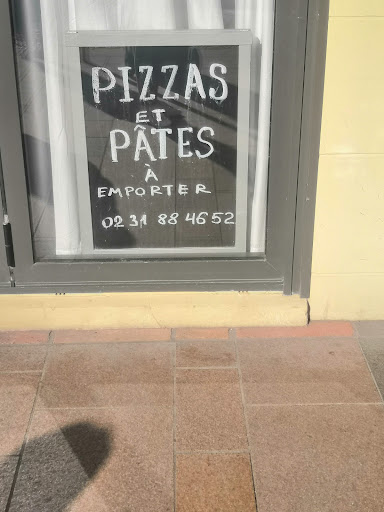 PIZZAS
ET
PÂTES
À
EMPORTER
02 31 88 46 52